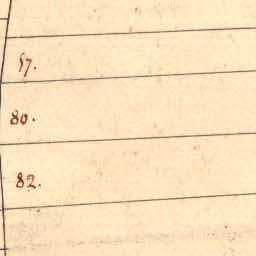 57.
80.
82.